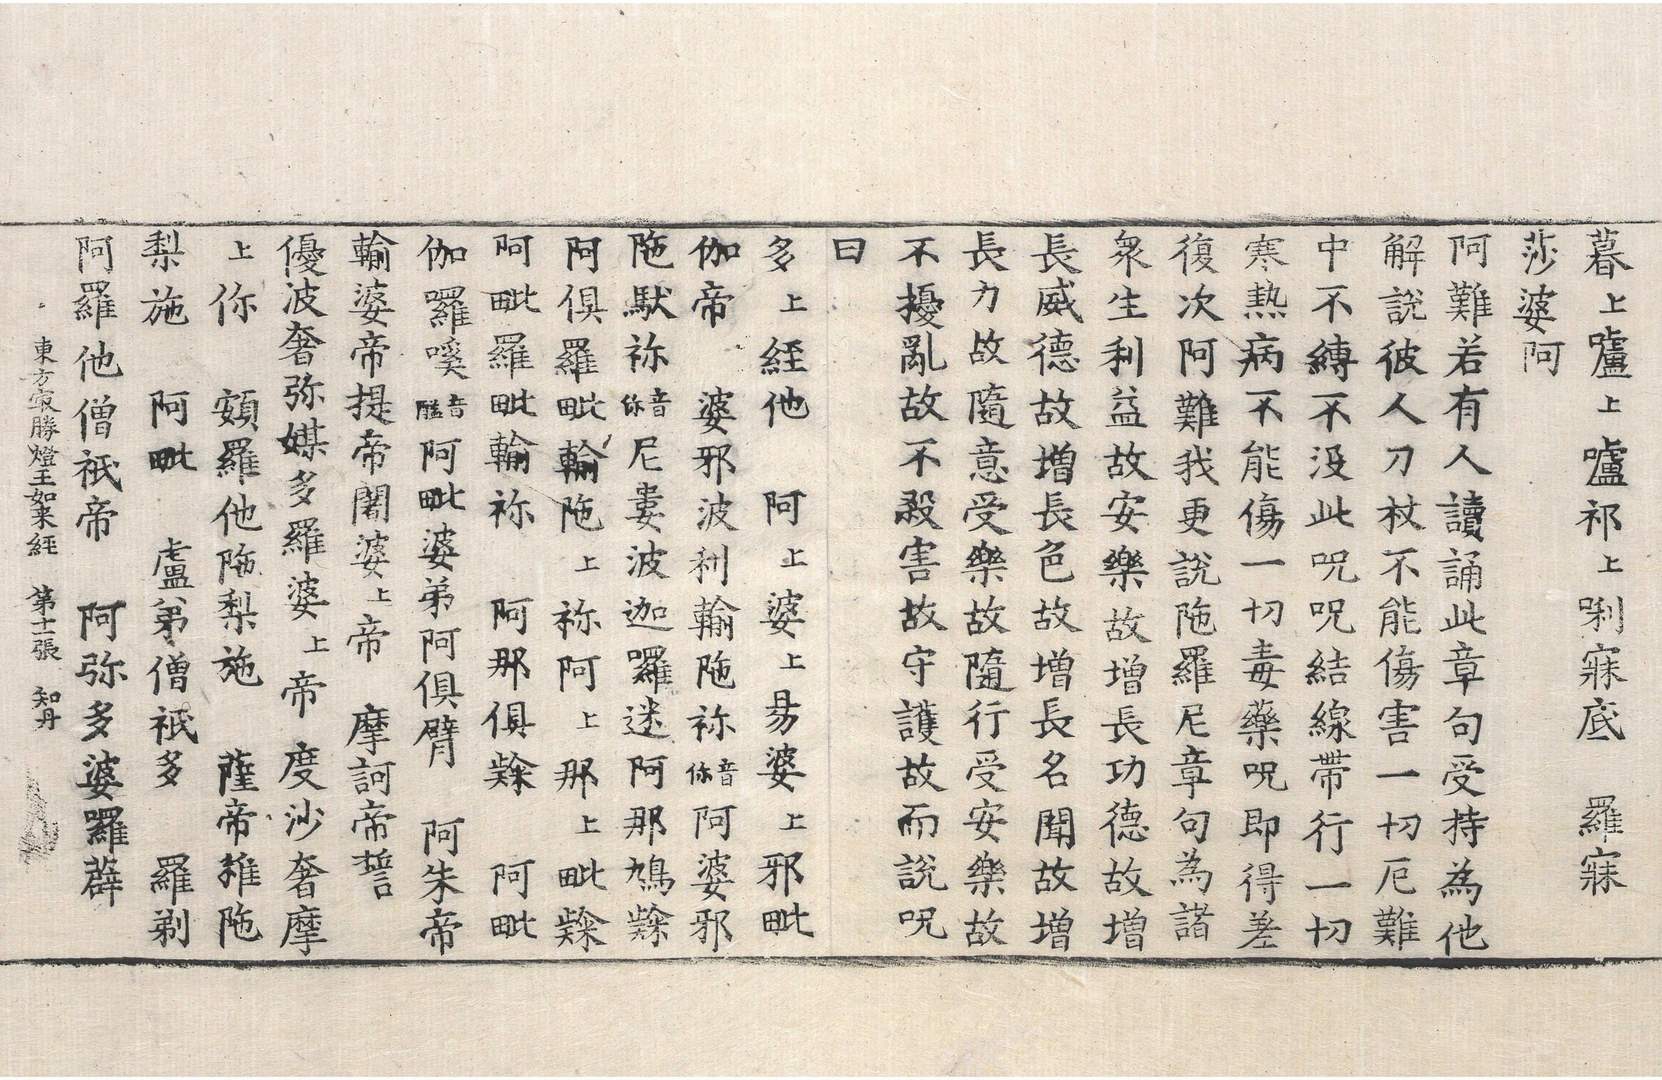 暮上嚧上嚧祁上唎寐底　羅寐
莎婆阿
阿難若有人讀誦此章句受持為他
解說彼人刀杖不能傷害一切厄難
中不縛不没此呪呪結線帶行一切
寒熱病不能傷一切毒藥呪即得差
復次阿難我更說陁羅尼章句為諸
衆生利益故安樂故增長功德故增
長威德故增長色故增長名聞故增
長力故隨意受樂故隨行受安樂故
不擾亂故不殺害故守護故而說呪
曰
多上絰他　阿上婆上昜婆上邪毗
伽帝　婆邪波利輸陁祢音你阿婆邪
陁馱祢音你尼婁波迦囉迷阿那鳩
阿俱羅毗輸陁上祢阿上那上毗
阿毗羅毗輸祢　阿那俱　阿毗
伽囉嗘音醯阿毗婆弟阿俱臂　阿朱帝
輸婆帝提帝闍婆上帝　摩訶帝誓
優波奢弥媒多羅婆上帝　度沙奢摩
上你　頞羅他陁梨施　薩帝雜陁
梨施　阿毗　盧弟僧祇多　羅剃
阿羅他僧祇帝　阿弥多婆囉薜
東方㝡勝燈王如来経　第十一張　知丹